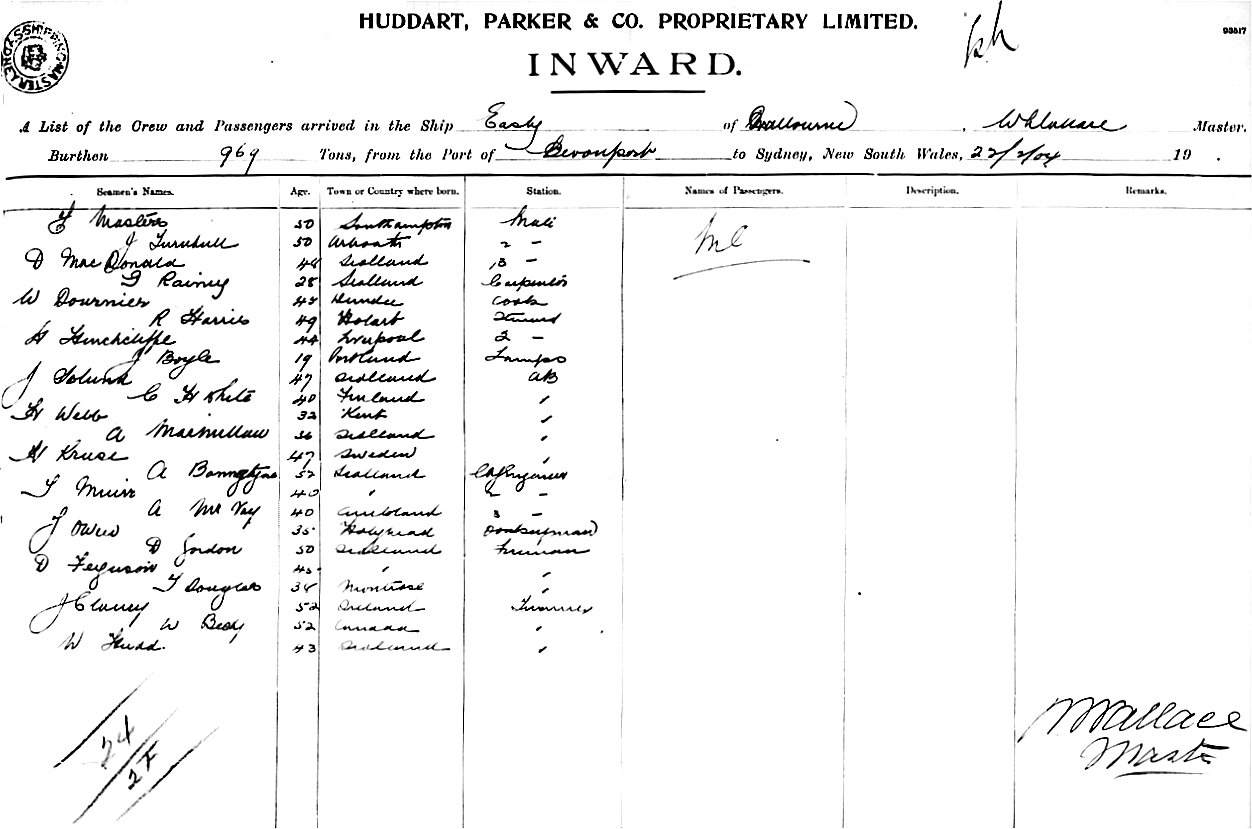 HUDDART, PARKER & CO. PROPRIETARY LIMITED.
93517
INWARD.
A List of the Crew and Passengers arrived in the Ship Easby of Melbourne, W Wallace Master.
Burthen 969 Tons, from the Port of Devonport to Sydney, New South Wales, 22/2/04 19 .
Seamen's Names. Age. Town or Country where born. Station. Names of Passengers. Description. Remarks.
Masters 50 Southampton Mate
J Turnbull 50 Arbroath 2 -
D MacDonald 48 Scotland 3 -
Rainey 28 Scotland Carpenter
W Dournier 48 Dundee Cook
R Harris 49 Hobart Steward
H Hinchcliffe 44 Liverpool 2 -
J Boyle 19 Portland Lamps
J 47 Scotland AB
C H White 40 Finland "
H Webb 32 Kent "
A Macmillan 36 Scotland "
H Kruse 47 Sweden "
A 52 Scotland Ch Engineer
T Muir 40 " 2 -
A McVay 40 3 -
J Owen 35 Holyhead Donkeyman
D Gordon 50 Scotland Fireman
D Ferguson 45 " "
T Douglas 38 Montrose "
J Clancy 52 Ireland Trimmer
W 52 Canada "
W Hudd. 43 Scotland "
24
W Wallace
Master